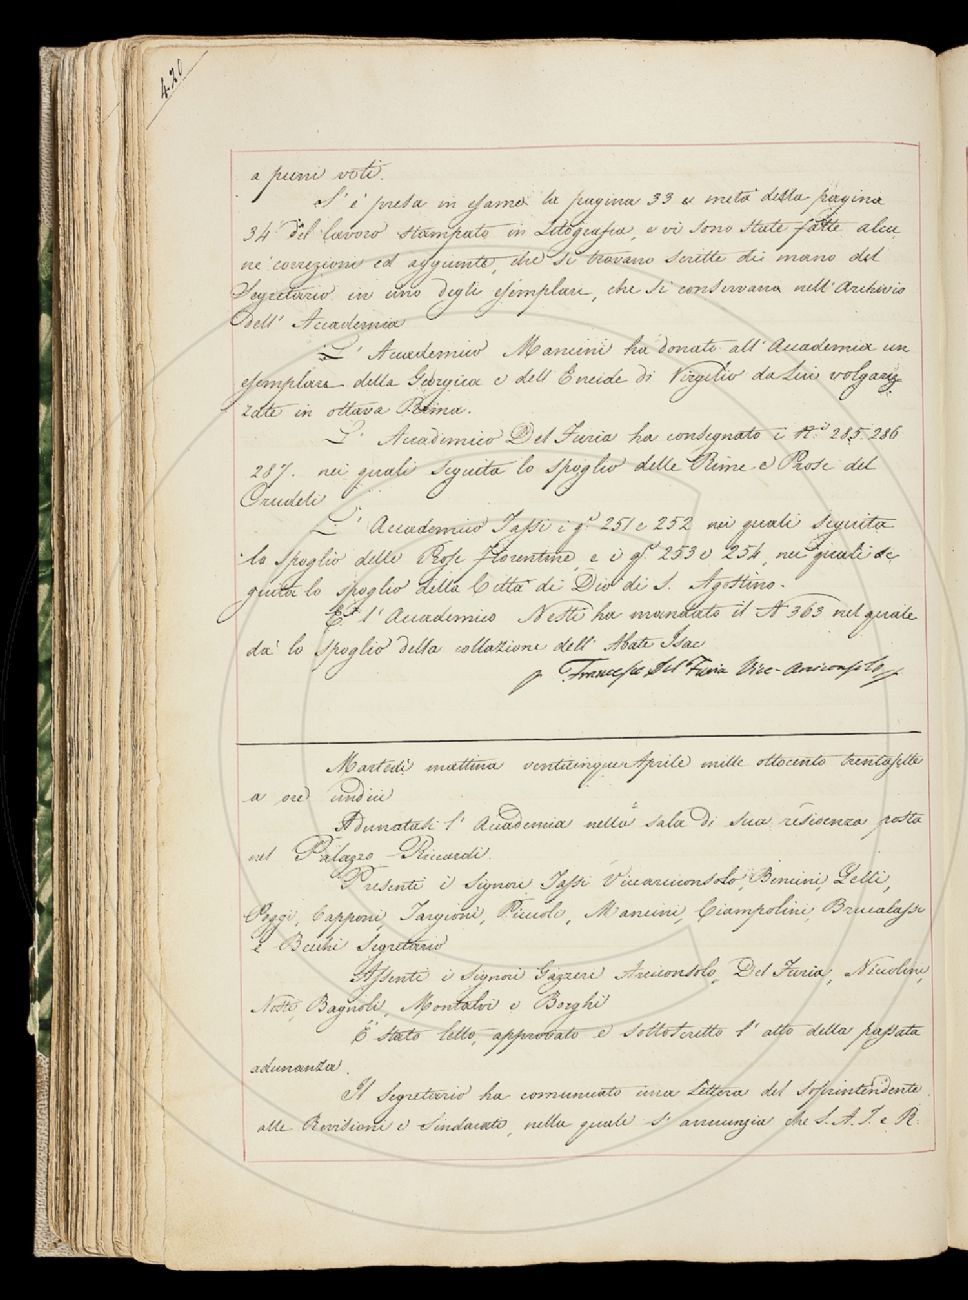 420
a pieni voti.
S' è presa in esame la pagina 33 e metà della pagina
34 del lavoro stampato in Litografia, e vi sono state fatte alcu
ne correzioni ed aggiunte, che si trovano scritte di mano del
Segretario in uno degli esemplari, che si conservana nell'Archivio
dell' Accademia
L' Accademico Mancini ha donato all'Accademia un
esemplare della Georgica e dell'Eneide di Virgilio da Lui volgariz
zate in ottava Rima.
L' Accademico Del Furia ha consegnato i N.i 285. 286
287. nei quali seguita lo spoglio delle Rime e Prose del
Crudeli
L' Accademico Tassi i q.i 251 e 252 nei quali seguita
lo spoglio delle Prose fiorentine, e i q.i 253 e 254, nei quali se
guita lo spoglio della Città di Dio di S. Agostino.
E l'Accademico Nesti ha mandato il N 363 nel quale
dà lo spoglio della collazione dell' Abate Isac
Francesco Del Furia Vice-Arciconsolo
Martedì mattina venticinque Aprile mille ottocento trentasette
a ore undici
Adunatasi l' Accademia nella sala di sua residenza posta
nel Palazzo Riccardi.
Presenti i Signori Tassi Vicearciconsolo, Bencini, Zelli,
Poggi, Capponi, Targioni, Piccioli, Mancini, Ciampolini, Brucalassi
e Becchi Segretario
Assenti i Signori Gazzeri Arciconsolo, Del Furia, Niccolini,
Nesti, Bagnoli, Montalvi e Borghi
È stato letto, approvato e sottoscritto l' atto della passata
adunanza.
Il segretario ha comunicato una Lettera del Soprintendente
alle Revisioni e Sindacati, nella quale s' annunzia che S. A. I. e R.